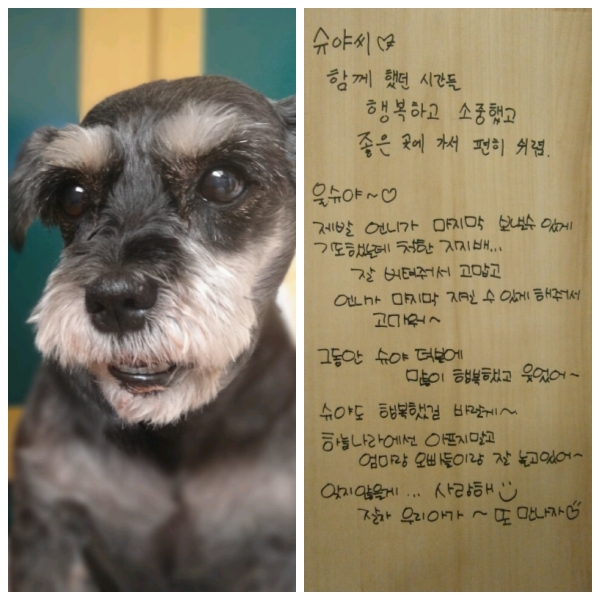 슈야씨♡
함께 했던 시간들
행복하고 소중했고
좋은 곳에 가서 편히 쉬렴.
욱슈야~♡
제발 언니가 마지막 보낼수 있게
기도했는데 착한 지지배...
잘 버텨줘서 고맙고
언니가 마지막 지킬 수 있게 해줘서
고마워~
그동안 슈야 덕분에
많이 행복했고 웃었어~
슈야도 행복했길 바랄게~
하늘나라에선 아프지말고
엄마랑 오빠들이랑 잘 놀고있어~
잊지않을게... 사랑해
잘자 우리아가~ 또 만나자♡